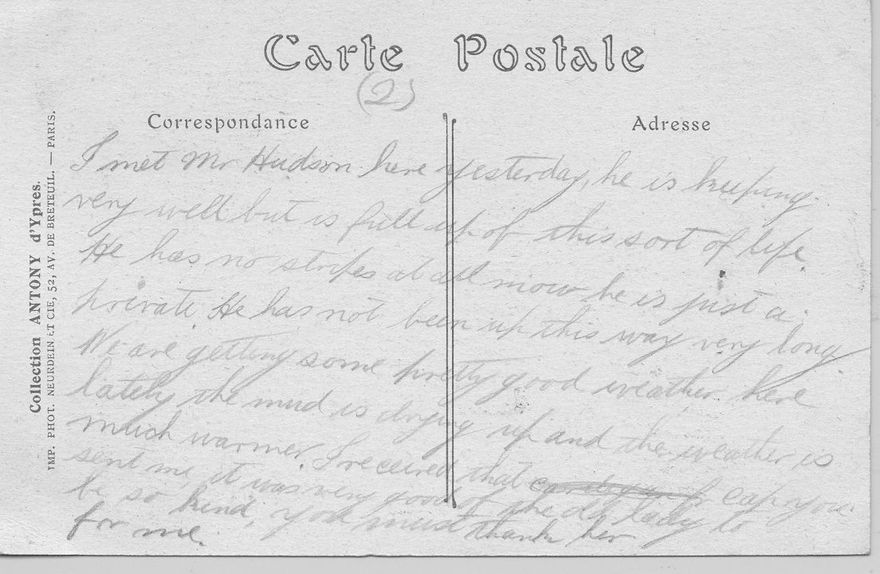 Carte Postale
(2)
Correspondance
Adresse
Collection ANTONY d'Ypres.
IMP. PHOT. NEURDEIN ET CIE, 52, AV. DE BRETEUIL. — PARIS.
I met Mr Hudson here yesterday, he is keeping
very well but is full up of this sort of life
He has no stripes at all now he is just a
private. He has not been up this way very long
We are getting some pretty good weather here
lately the mud is drying up and the weather is
much warmer. I received that cap you
sent me, it was very good of the old lady to
be so kind, you must thank her
for me.